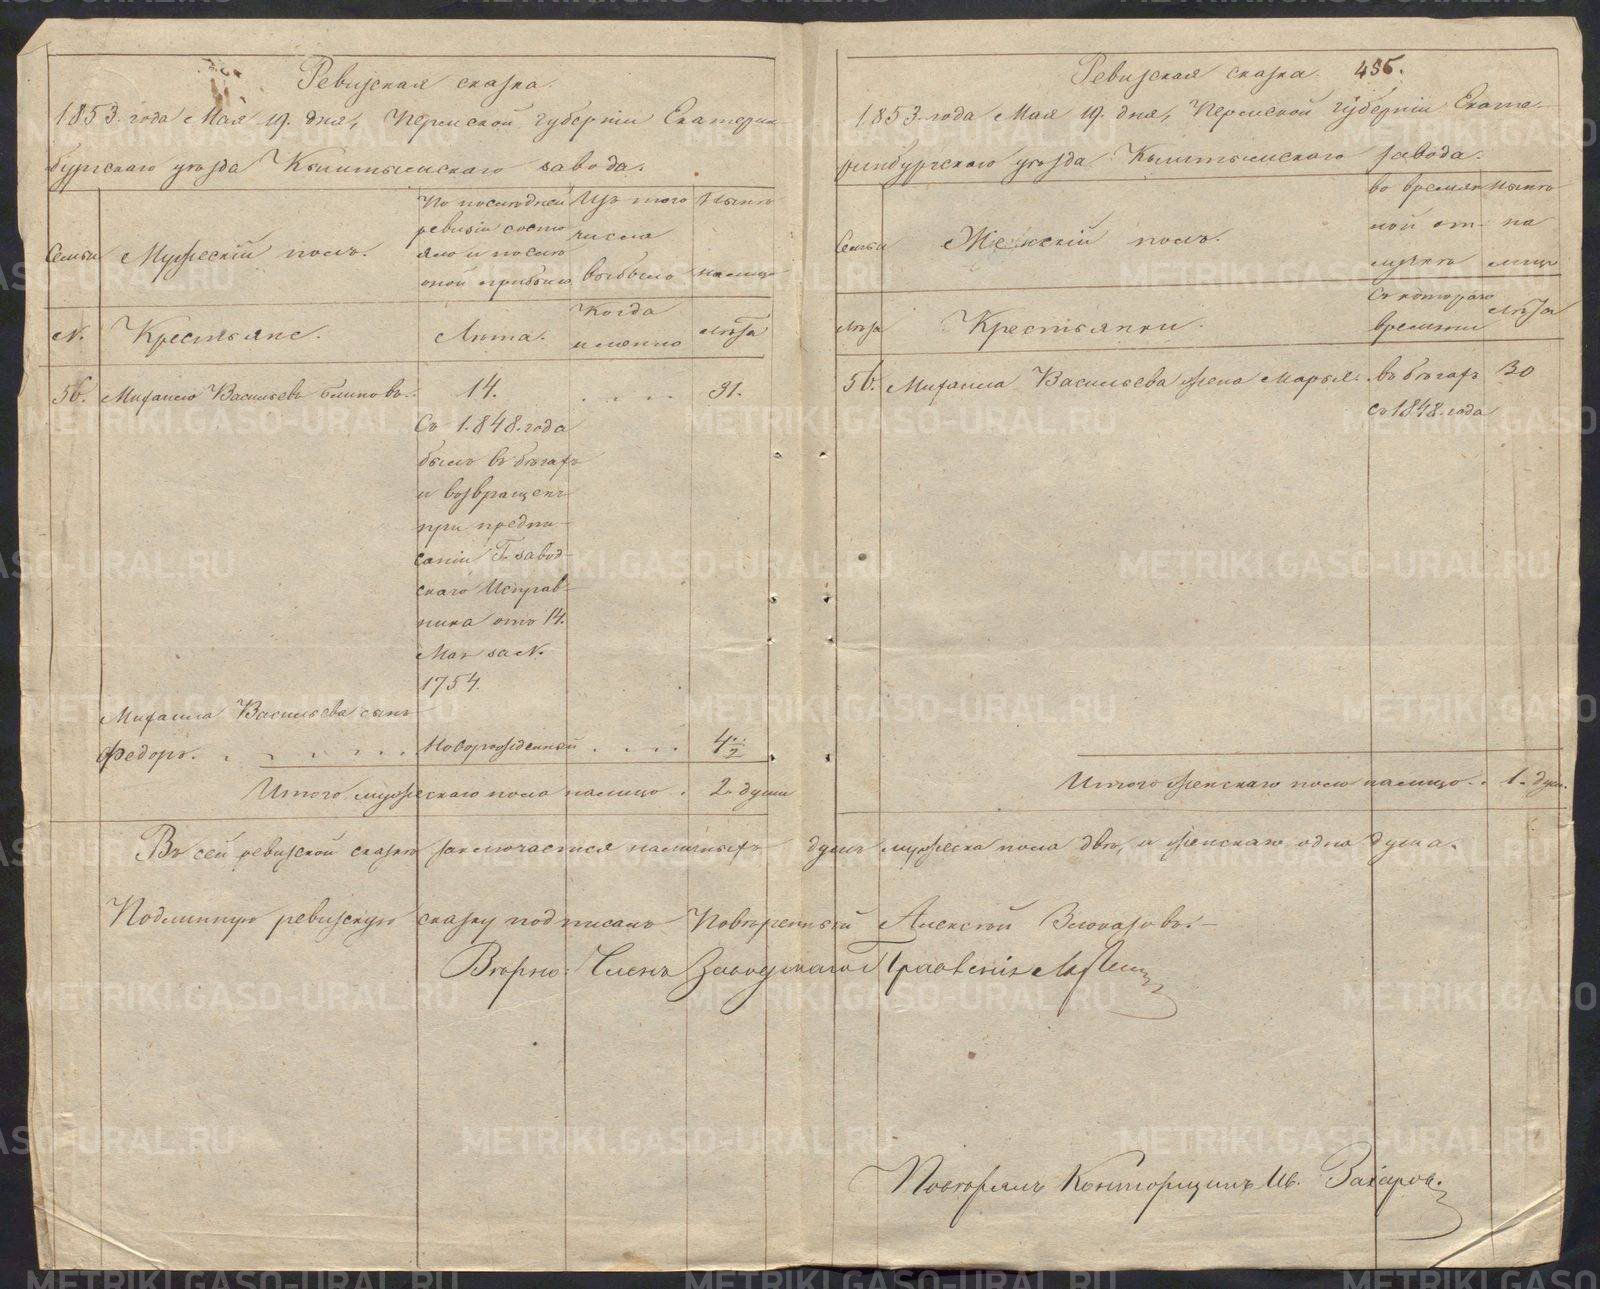 Ревизская сказка.
1853. года Мая 19. дня, Пермской губернiи Екатерин
бургскаго уѣзда Кыштымскаго завода.
Семьи
Мужескiй полъ.
По последней
ревизiи состо
яло и послѣ
оной прибыло
Изъ того
числа
выбыло
Нынѣ
на лицо
№.
Крестьяне.
Лѣта.
Когда
именно
Лѣта
56.
Михаило Васильевъ Блиновъ.
14.
31.
Съ 1848. года
былъ въ бѣгахъ
и возвращенъ
при предпи-
санiи Г. завод-
скаго Исправ-
ника отъ 14.
Мая за №.
1754.
Михаила Васильева сынъ
Федоръ.
Новорожденный
4 1/2
Итого мужескаго пола налицо . 2 души
Ревизская сказка.
1853. года Мая 19. дня, Пермской губернiи Екате-
ринбургскаго уѣзда Кыштымскаго завода.
Семьи
Женскiй полъ.
во времян
ной от-
лучкѣ
Нынѣ
на
лицо
Крестьянки.
Съ котораго
времени
Лѣта
56.
Михаила Васильева жена Марья.
въ бѣгахъ
съ 1848. года
30
Итого женскаго пола налицо . 1. душ.
Въ сей ревизской сказкѣ заключается наличныхъ душъ мужеска пола двѣ, и женскаго одна душа.
Подлинную ревизскую сказку подписалъ Повѣренный Алексѣй Злоказовъ.
Вѣрно: Членъ Заводскаго Правленiя
Повѣрялъ Конторщикъ Ив. Захаров.
METRIKI.GASO-URAL.RU